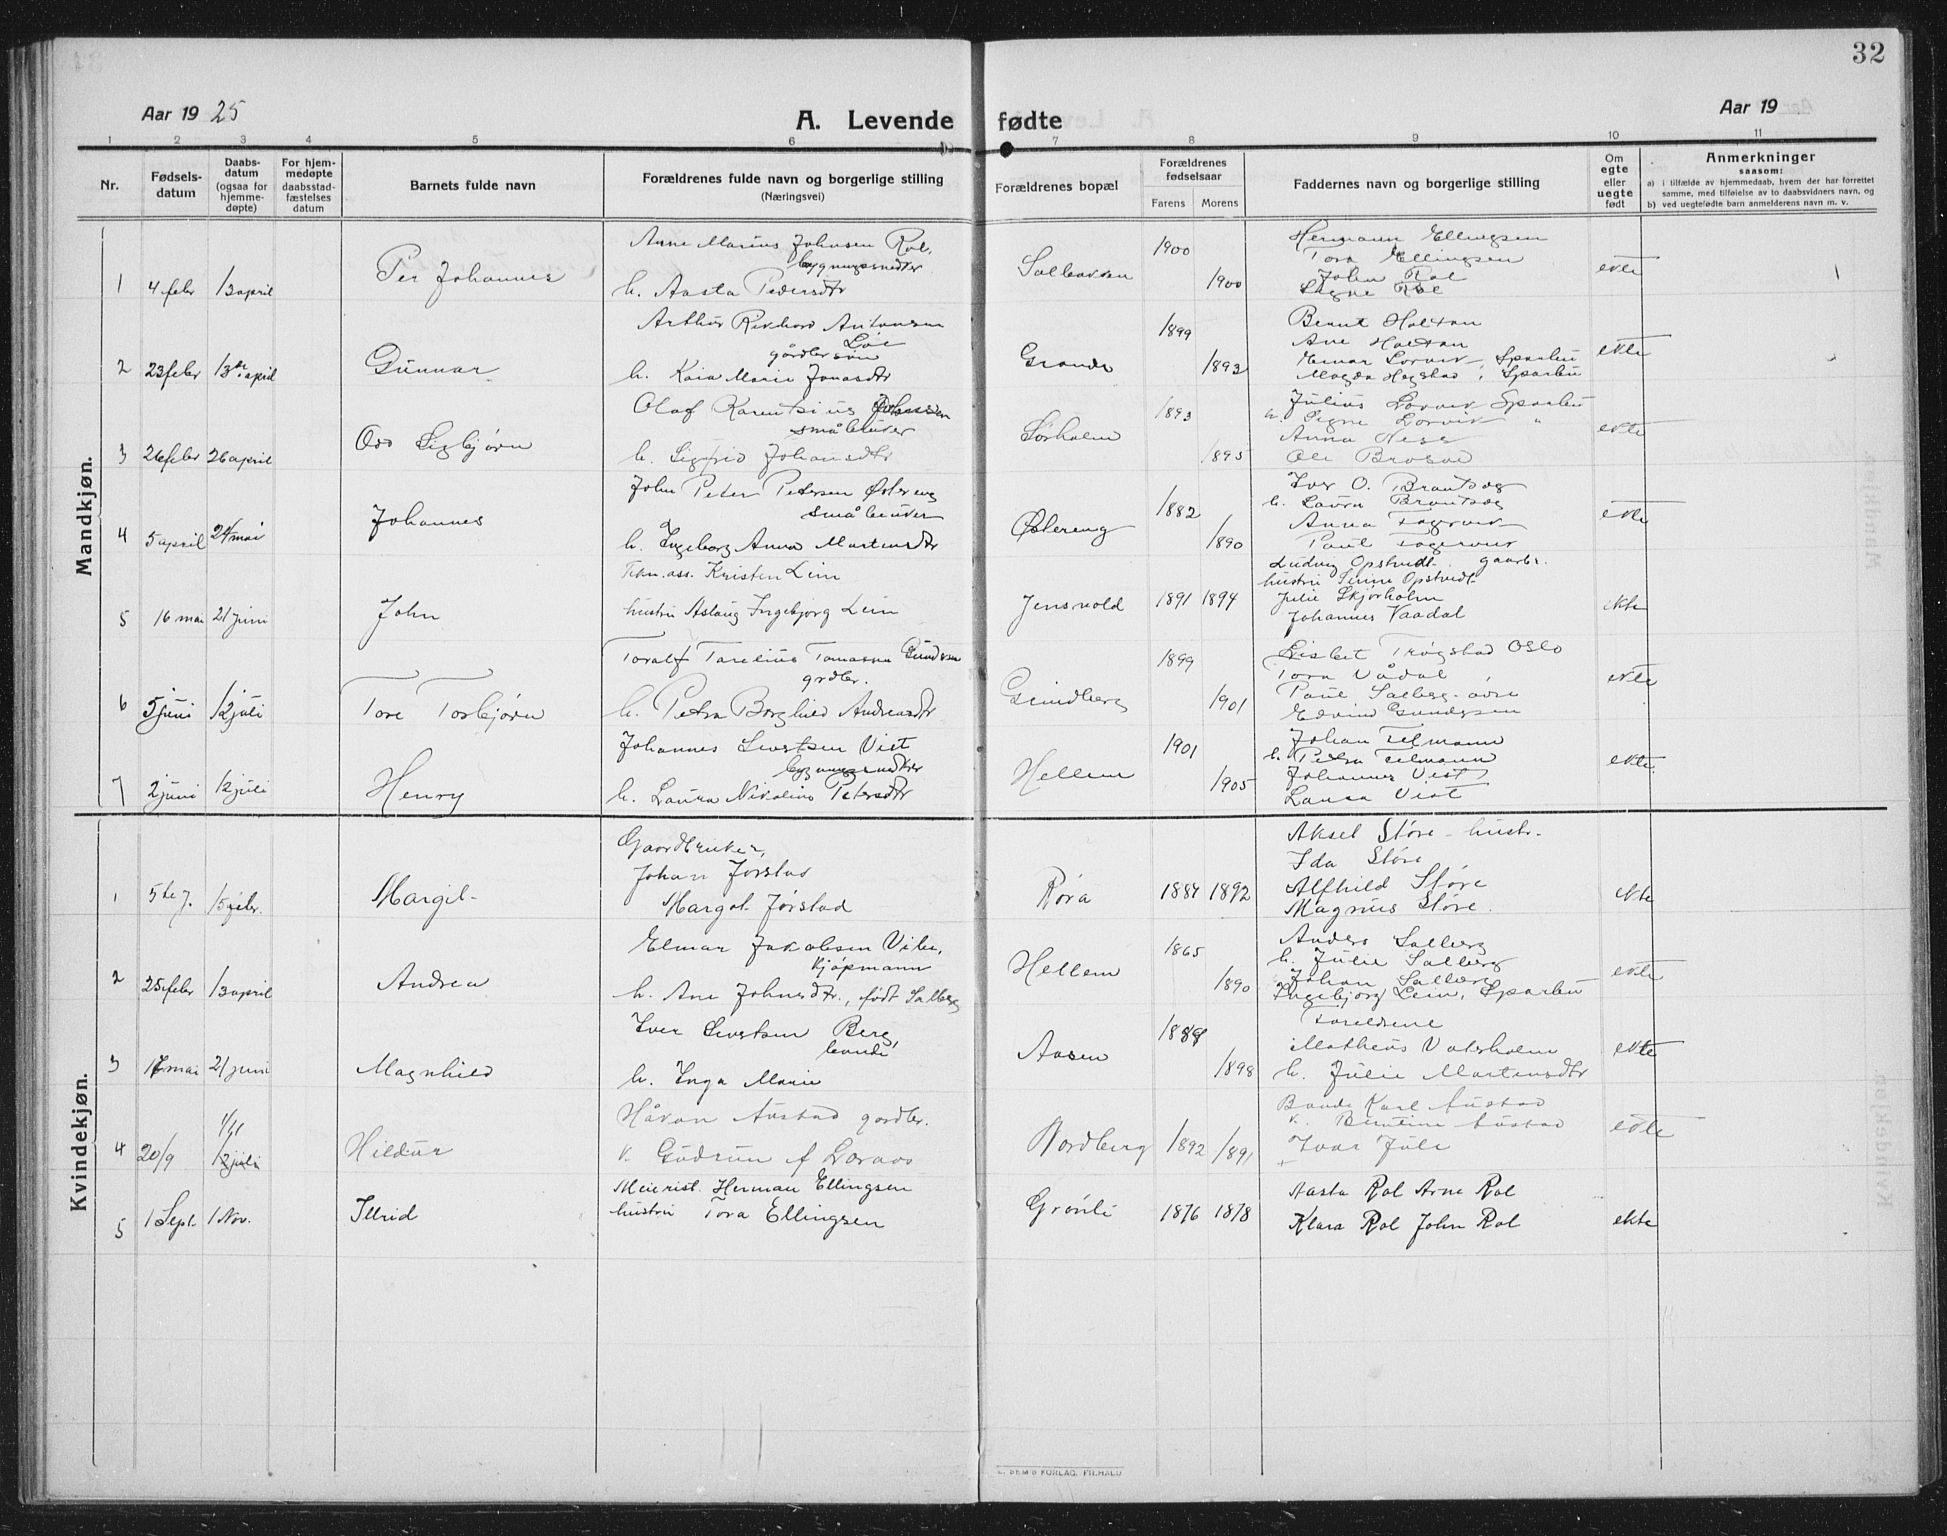 32
Aar 1925
A. Levende fødte
Aar 19
1 2 3 4 5 6 7 8 9 10 11
Nr.
Fødsels-datum
Daabs-datum (ogsaa for hjemme-døpte)
For hjem-medøpte daabsstad-fæstelses datum
Barnets fulde navn
Forældrenes fulde navn og borgerlige stilling
(Næringsvei)
Forældrenes bopæl
Forældrenes fødselsaar
Farens Morens
Faddernes navn og borgerlige stilling
Om egte eller uegte født
Anmerkninger
saasom:
a) i tilfælde av hjemmedaab, hvem der har forrettet
samme, med tilføielse av to daabsvidners navn, og
b) ved uegtefødte barn anmelderens navn m. v.
Mandkjøn.
1 4 febr 13 april Per Johannes
Arne Marius Johnsen Rol,
bygningssnedker
h. Aasta Pedersdtr
Salhaven 1900 1900
Hermann Ellingsen
Tora Ellingsen
John Rol
Signe Rol
ekte 1
2 23 febr 13de april Gunnar
Arthur Rikhard Antonsen
Løe
gårdbr søn
h. Kaia Marie Jonasdtr
Grande 1899 1893
Bernt Holtan
Ane Holtan
Einar Lorvik, Sparbu
Magda Hegstad, Sparbu
ekte
3 26 febr 26 april Odd Sigbjørn
Olaf Karentsius Johnsen
småbruker
h. Sigfrid Johansdtr
Sørholm 1893 1895
Julius Lorvik Sparbu
h. Signe Lorvik "
Anna Ness
Ole
ekte
4 5 april 24 mai Johannes
John Peter Petersen Østereng
småbruker
h. Ingeborg Anna Martensdtr
Østereng 1882 1890
Iver O. Brantsæg
h. Laura Brantsæg
Anna Fagervik
Paul Fagervik
ekte
5 16 mai 21 juni John
Tekn. ass. Kristen Lein
hustru Aslaug Ingebjørg Lein
Jensvold 1891 1894
Ludvig Opstvedt gaarbr.
hustru Sinne Opstvedt
Julie Skjørholm
Johannes Vaadal
ekte
6 5 juni 12 juli Tore Torbjørn
Toralf Torelius Tomassen Gundersen
grdbr.
h. Petra Borghild Andreasdtr
Grindberg 1899 1901
Lisbet Trøgstad Oslo
Tora Vådal
Paul Salberg
Edvind Gundersen
ekte
7 2 juni 12 juli Henry
Johannes Sivertsen Vist
bygningssnedker
h. Laura Nikoline Petersdtr
Hellem 1901 1905
Johan Telmann
h. Petra Telmann
Johannes Vist
Laura Vist
ekte.
Kvindekjøn.
1 5te J. 15 febr. Margit
Gaardbruker,
Johan Jørstad
Margot Jørstad
Røra 1887 1892
Aksel Støre - hustr.
Ida Støre
Alfhild Støre
Magnus Støre.
ekte
2 25 febr 13 april Andrea
Elmar Jakobsen Vibe,
kjøpmann
h. Ane Johnsdtr., født Salberg
Hellem 1865 1890
Anders Salberg
h. Julie Salberg
Johan Salberg
Ingebjørg Lein, Sparbu
ekte
3 16 mai 21 juni Magnhild
Iver Sivertsen Berg,
bonde
h. Inga Marie
Aasen 1889 1898
Foreldrene
Matheus Vatsholm
h. Julie Martensdtr
ekte
4 20/9 1/11 12 juli Hildur
Håkon Austad gardbr.
k. Gudrun f Loraas
Nordberg 1892 1891
Bonde Karl Austad
k. Berntine Austad
Ivar Jule
ekte
5 1 Sept. 1 Nov. Idrid
Meierist. Herman Ellingsen
hustru Tora Ellingsen
Grønli 1876 1878
Aasta Rol Arne Rol
Klara Rol John Rol
ekte
E. SEM'S FORLAG, FR.HALD